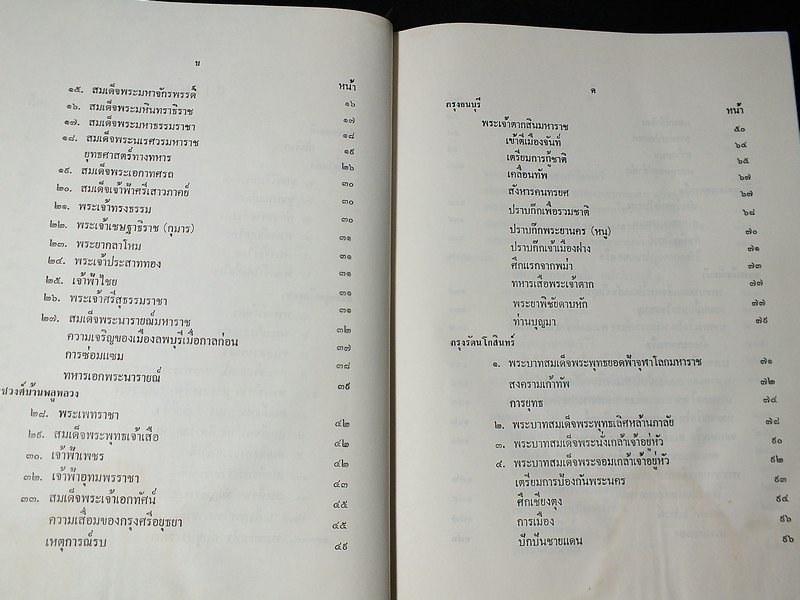 ข
หน้า
๑๕. สมเด็จพระมหาจักรพรรดิ์ ๑๖
๑๖. สมเด็จพระมหินทราธิราช ๑๗
๑๗. สมเด็จพระมหาธรรมราชา ๑๘
๑๘. สมเด็จพระนเรศวรมหาราช ๑๙
ยุทธศาสตร์ทางทหาร ๒๖
๑๙. สมเด็จพระเอกาทศรถ ๓๐
๒๐. สมเด็จเจ้าฟ้าศรีเสาวภาคย์ ๓๐
๒๑. พระเจ้าทรงธรรม ๓๐
๒๒. พระเจ้าเชษฐาธิราช (กุมาร) ๓๑
๒๓. พระยากลาโหม ๓๑
๒๔. พระเจ้าประสาททอง ๓๑
๒๕. เจ้าฟ้าไชย ๓๑
๒๖. พระเจ้าศรีสุธรรมราชา ๓๑
๒๗. สมเด็จพระนารายณ์มหาราช ๓๒
ความเจริญของเมืองลพบุรีเมื่อกาลก่อน ๓๗
การซ่อมแซม ๓๘
ทหารเอกพระนารายณ์ ๓๙
ชวงศ์บ้านพลูหลวง
๒๘. พระเพทราชา ๔๒
๒๙. สมเด็จพระพุทธเจ้าเสือ ๔๒
๓๐. เจ้าฟ้าเพชร ๔๒
๓๒. เจ้าฟ้าอุทุมพรราชา ๔๓
๓๓. สมเด็จพระเจ้าเอกทัศน์ ๔๕
ความเสื่อมของกรุงศรีอยุธยา ๔๕
เหตุการณ์รบ ๔๙
ค
หน้า
กรุงธนบุรี
พระเจ้าตากสินมหาราช ๕๐
เข้าตีเมืองจันท์ ๖๔
เตรียมการกู้ชาติ ๖๕
เคลื่อนทัพ ๖๗
สังหารคนทรยศ ๖๗
ปราบก๊กเพื่อรวมชาติ ๖๘
ปราบก๊กพระยานคร (หนู) ๗๐
ปราบก๊กเจ้าเมืองฝาง ๗๑
ศึกแรกจากพม่า ๗๓
ทหารเสือพระเจ้าตาก ๗๗
พระยาพิชัยดาบหัก ๗๗
ท่านบุญมา ๗๙
กรุงรัตนโกสินทร์
๑. พระบาทสมเด็จพระพุทธยอดฟ้าจุฬาโลกมหาราช ๗๑
สงครามเก้าทัพ ๗๒
การยุทธ ๗๔
๒. พระบาทสมเด็จพระพุทธเลิศหล้านภาลัย ๗๘
๓. พระบาทสมเด็จพระนั่งเกล้าเจ้าอยู่หัว ๙๐
๔. พระบาทสมเด็จพระจอมเกล้าเจ้าอยู่หัว ๙๒
เตรียมการป้องกันพระนคร ๙๓
ศึกเชียงตุง ๙๔
การเมือง ๙๖
ปักปันชายแดน ๙๖